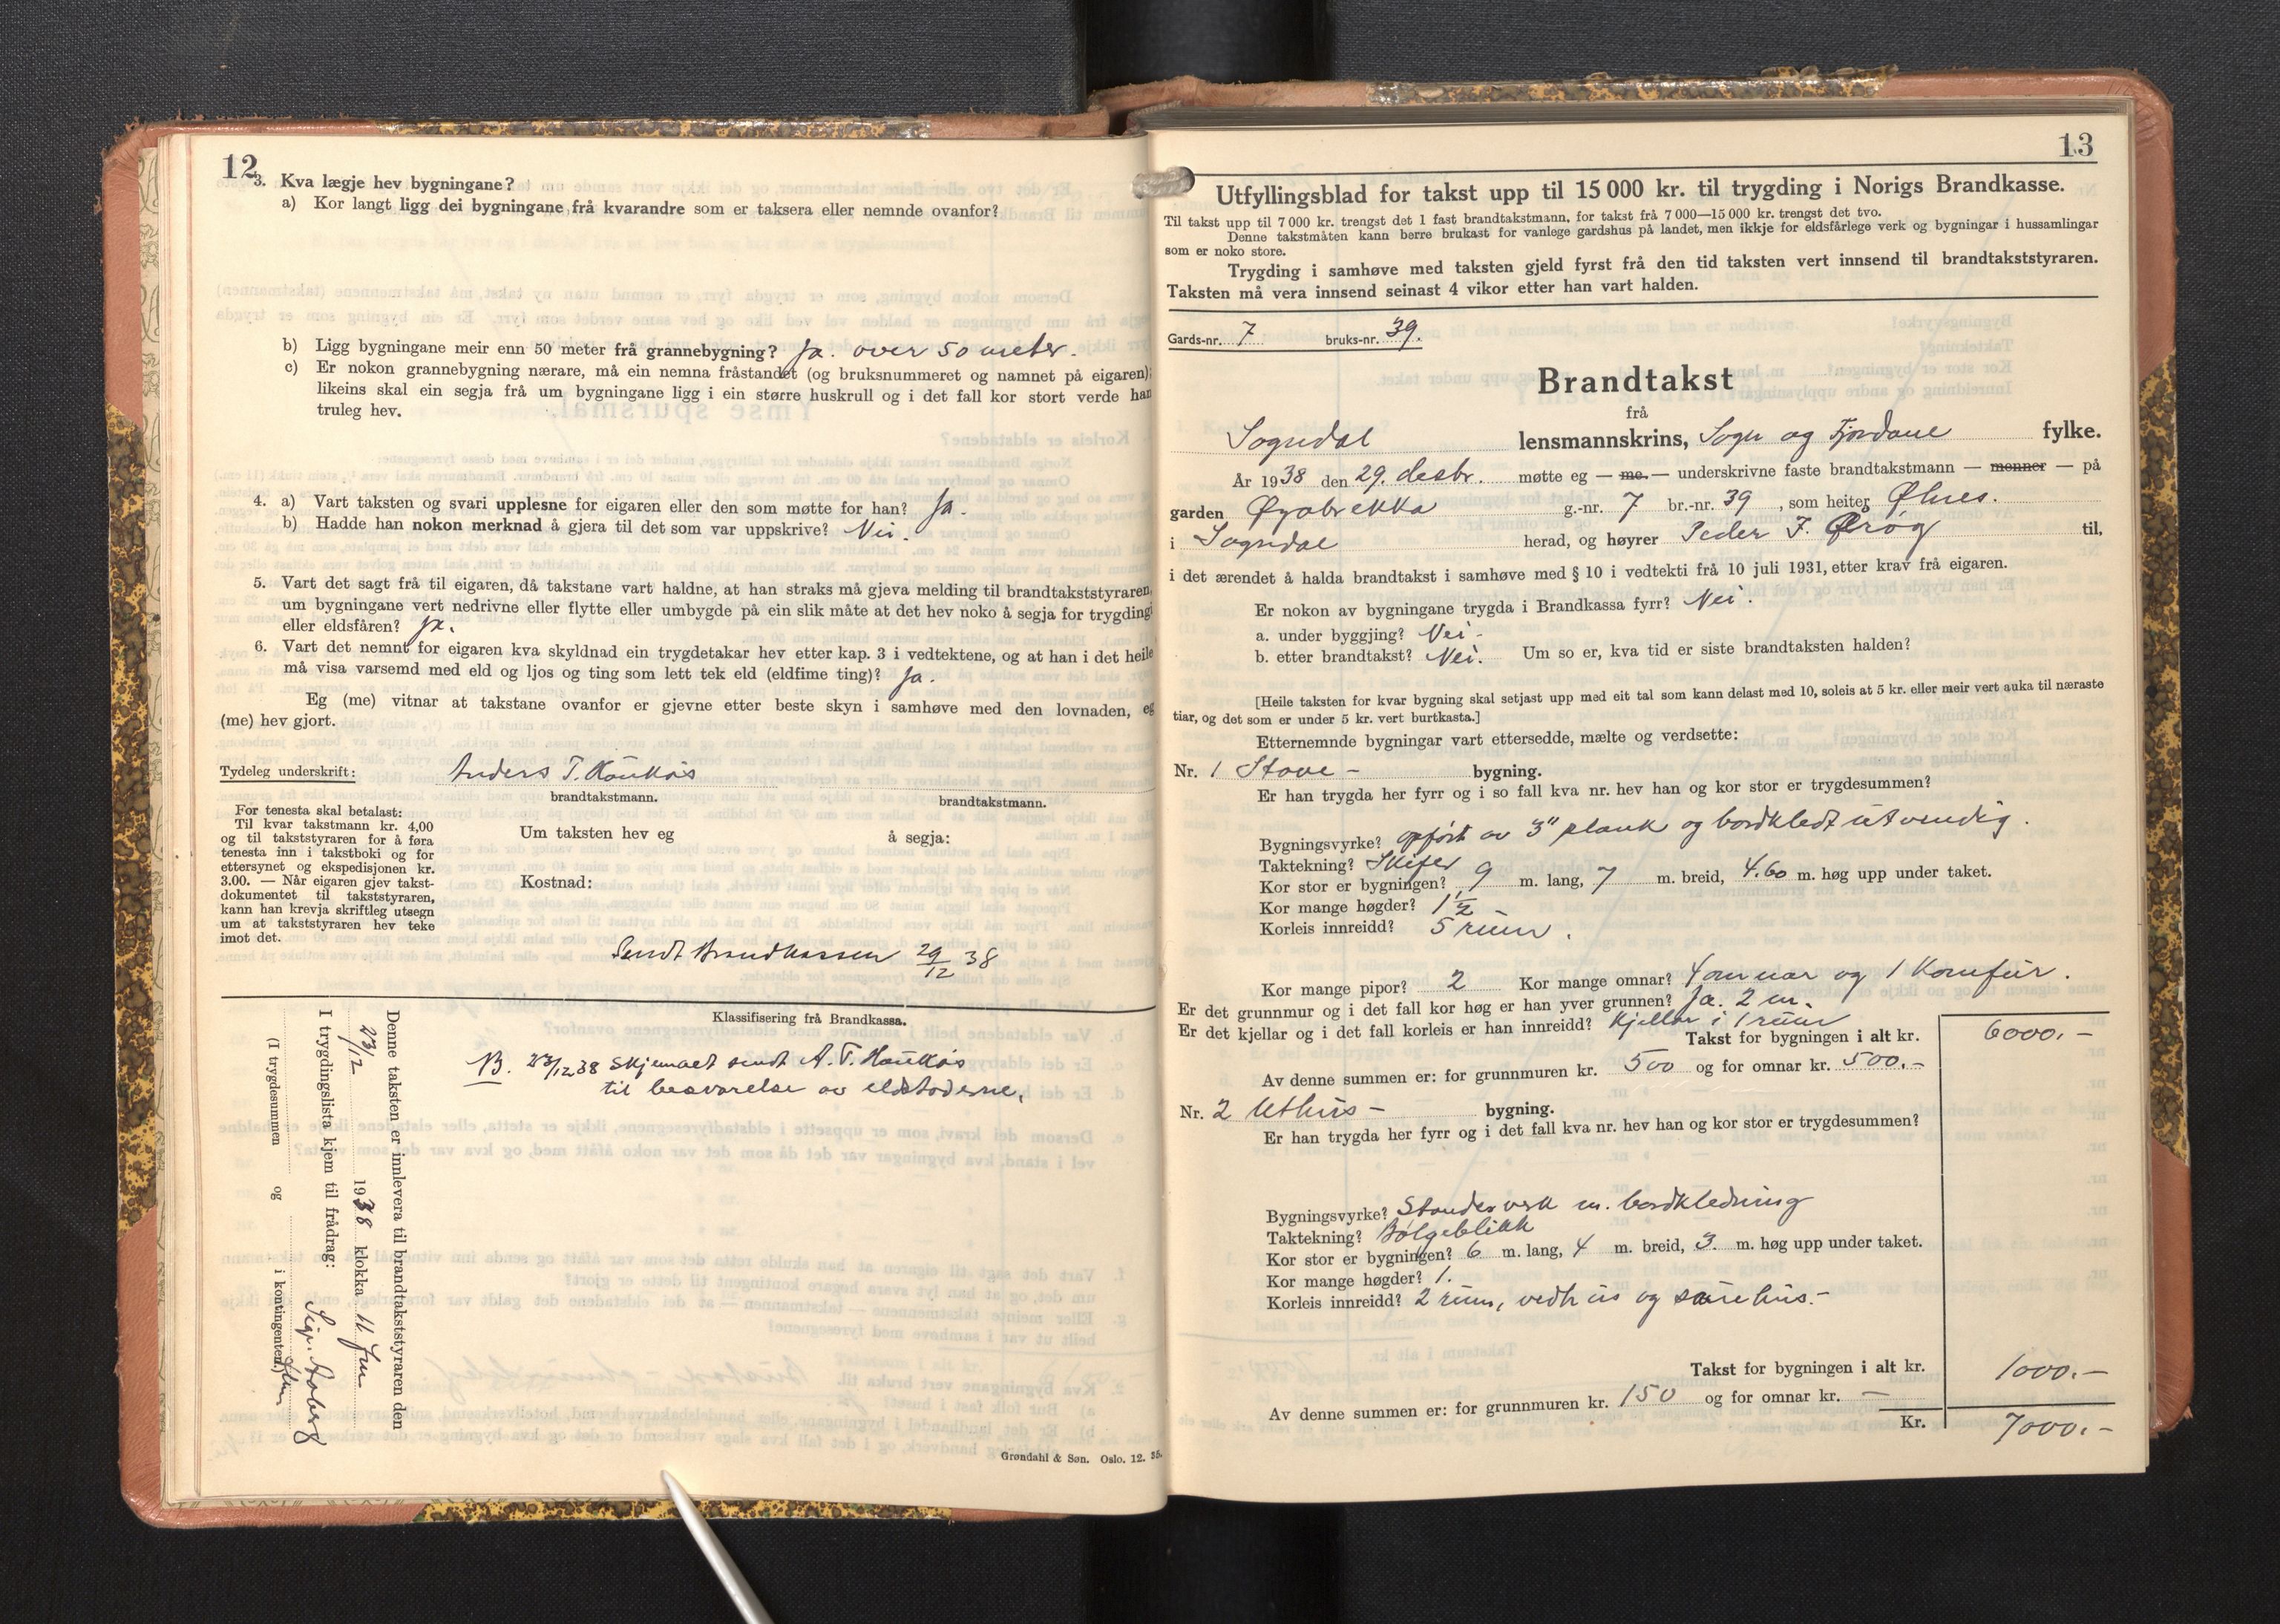 12
3. Kva lægje hev bygningane?
a) Kor langt ligg dei bygningane frå kvarandre som er taksera eller nemnde ovanfor?
b) Ligg bygningane meir enn 50 meter frå grannebygning? Ja. over 50 meter.
c) Er nokon grannebygning nærare, må ein nemna fråstandet (og bruksnummeret og namnet på eigaren);
likeins skal ein segja frå um bygningane ligg i ein større huskrull og i det fall kor stort verde han
truleg hev.
4. a) Vart taksten og svari upplesne for eigaren eller den som møtte for han? Ja.
b) Hadde han nokon merknad å gjera til det som var uppskrive? Nei.
5. Vart det sagt frå til eigaren, då takstane vart haldne, at han straks må gjeva melding til brandtakststyraren,
um bygningane vert nedrivne eller flytte eller umbygde på ein slik måte at det hev noko å segja for trygdingi
eller eldsfåren? Ja.
6. Vart det nemnt for eigaren kva skyldnad ein trygdetakar hev etter kap. 3 i vedtektene, og at han i det heile
må visa varsemd med eld og ljos og ting som lett tek eld (eldfime ting)? Ja.
Eg (me) vitnar at takstane ovanfor er gjevne etter beste skyn i samhøve med den lovnaden, eg
(me) hev gjort.
Tydeleg underskrift: Anders T. Haukås
brandtakstmann. brandtakstmann.
For tenesta skal betalast:
Til kvar takstmann kr. 4,00
og til takststyraren for å føra
tenesta inn i takstboki og for
ettersynet og ekspedisjonen kr.
3.00. — Når eigaren gjev takst-
dokumentet til takststyraren,
kann han krevja skriftleg utsegn
um at takststyraren hev teke
imot det.
Um taksten hev eg å segja:
Kostnad:
Sendt Brandkassen 29/12 38
Klassifisering frå Brandkassa.
B. 23/12 38 Skjemaet sendt A. T. Haukås
til besvarelse av eldstoderne.
Denne taksten er innlevera til brandtakststyraren den
23/12 1938 klokka 11 fm
I trygdingslista kjem til frådrag:
(I trygdesummen og i kontingenten.)
Grøndahl & Søn. Oslo. 12. 35.
13
Utfyllingsblad for takst upp til 15 000 kr. til trygding i Norigs Brandkasse.
Til takst upp til 7 000 kr. trengst det 1 fast brandtakstmann, for takst frå 7 000—15 000 kr. trengst det tvo.
Denne takstmåten kann berre brukast for vanlege gardshus på landet, men ikkje for eldsfårlege verk og bygningar i hussamlingar
som er noko store.
Trygding i samhøve med taksten gjeld fyrst frå den tid taksten vert innsend til brandtakststyraren.
Taksten må vera innsend seinast 4 vikor etter han vart halden.
Gards-nr. 7 bruks-nr. 39.
Brandtakst
frå
Sogndal lensmannskrins, Sogn og Fjordane fylke.
År 1938 den 29. desbr. møtte eg — me — underskrivne faste brandtakstmann — menner — på
garden Øyabrekka g.-nr. 7 br.-nr. 39, som heiter Ølnes.
i Sogndal herad, og høyrer Peder J. til,
i det ærendet å halda brandtakst i samhøve med § 10 i vedtekti frå 10 juli 1931, etter krav frå eigaren.
Er nokon av bygningane trygda i Brandkassa fyrr? Nei.
a. under byggjing? Nei.
b. etter brandtakst? Nei. Um so er, kva tid er siste brandtaksten halden?
[Heile taksten for kvar bygning skal setjast upp med eit tal som kann delast med 10, soleis at 5 kr. eller meir vert auka til næraste
tiar, og det som er under 5 kr. vert burtkasta.]
Etternemnde bygningar vart ettersedde, mælte og verdsette:
Nr. 1 Stove- bygning.
Er han trygda her fyrr og i so fall kva nr. hev han og kor stor er trygdesummen?
Bygningsvyrke? opført av 3" plank og bordkledt utvendig.
Taktekning? Skifer
Kor stor er bygningen? 9 m. lang, 7 m. breid, 4.60 m. høg upp under taket.
Kor mange høgder? 1 1/2
Korleis innreidd? 5 rum.
Kor mange pipor? 2 Kor mange omnar? 4 omnar og 1 Komfur.
Er det grunnmur og i det fall kor høg er han yver grunnen? Ja. 2 m.
Er det kjellar og i det fall korleis er han innreidd? Kjellar i 1 rum
Takst for bygningen i alt kr. 6000.-
Av denne summen er: for grunnmuren kr. 500 og for omnar kr. 500.-
Nr. 2 Uthus- bygning.
Er han trygda her fyrr og i det fall kva nr. hev han og kor stor er trygdesummen?
Bygningsvyrke? Standerverk m. bordkledning
Taktekning? Bølgeblikk
Kor stor er bygningen? 6 m. lang, 4 m. breid, 3. m. høg upp under taket.
Kor mange høgder? 1.
Korleis innreidd? 2 rum, vedhus og sauehus.-
Takst for bygningen i alt kr. 1000.-
Av denne summen er: for grunnmuren kr. 150 og for omnar kr. —
Kr. 7000.-